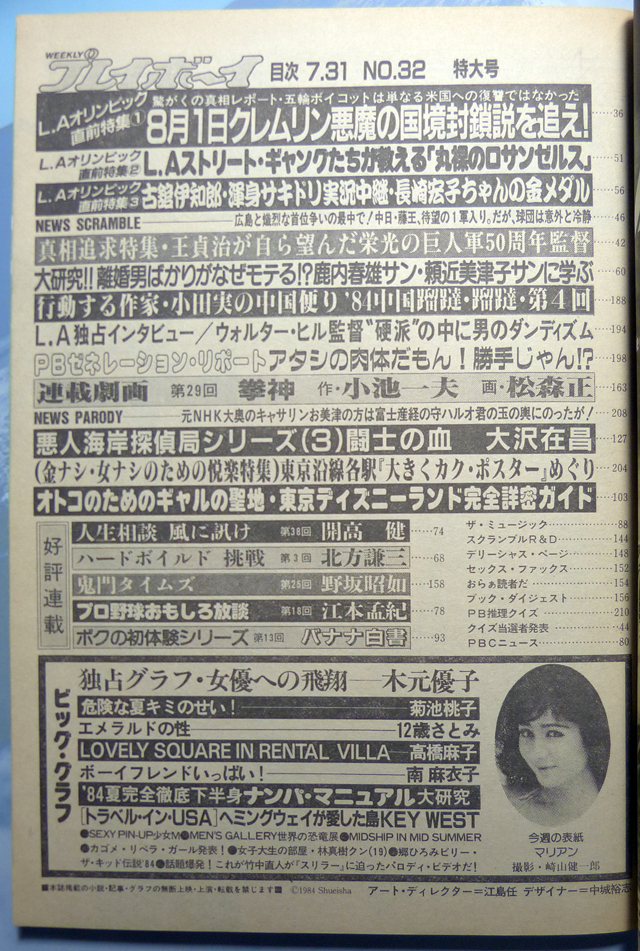 WEEKLY
プレイボーイ 目次 7.31 NO.32 特大号
L.Aオリンピック直前特集① 驚がくの真相レポート・五輪ボイコットは単なる米国への復讐ではなかった
8月1日クレムリン悪魔の国境封鎖説を追え! 36
L.Aオリンピック直前特集2 L.Aストリート・ギャングたちが教える「丸裸のロサンゼルス」 51
L.Aオリンピック直前特集3 古舘伊知郎・渾身サキドリ実況中継・長崎宏子ちゃんの金メダル 56
NEWS SCRAMBLE 広島と熾烈な首位争いの最中で!中日・藤王、待望の1軍入り。だが、球団は意外と冷静 46
真相追求特集・王貞治が自ら望んだ栄光の巨人軍50周年監督 42
大研究!!離婚男ばかりがなぜモテる!?鹿内春雄サン・頼近美津子サンに学ぶ 60
行動する作家・小田実の中国便り'84中国蹓躂・蹓躂・第4回 188
L.A独占インタビュー/ウォルター・ヒル監督“硬派”の中に男のダンディズム 194
PBゼネレーション・リポート アタシの肉体だもん!勝手じゃん!? 198
連載劇画 第29回 拳神 作・小池一夫 画・松森正 163
NEWS PARODY 元NHK大奥のキャサリンお美津の方は富士産経の守ハルオ君の玉の輿にのったが! 208
悪人海岸探偵局シリーズ(3)闘士の血 大沢在昌 127
(金ナシ・女ナシのための悦楽特集)東京沿線各駅『大きくカク・ポスター』めぐり 204
オトコのためのギャルの聖地・東京ディズニーランド完全詳密ガイド 103
好評連載
人生相談 風に訊け 第38回 開高 健 74
ハードボイルド 挑戦 第3回 北方謙三 68
鬼門タイムズ 第25回 野坂昭如 158
プロ野球おもしろ放談 第18回 江本孟紀 78
ボクの初体験シリーズ 第13回 バナナ白書 93
ザ・ミュージック 88
スクランブルR&D 144
デリーシャス・ページ 148
セックス・ファックス 152
おらぁ読者だ 154
ブック・ダイジェスト 156
PB推理クイズ 210
クイズ当選者発表 44
PBCニュース 80
ビッグ・グラフ
独占グラフ・女優への飛翔──木元優子
危険な夏キミのせい! 菊池桃子
エメラルドの性 12歳さとみ
LOVELY SQUARE IN RENTAL VILLA 高橋麻子
ボーイフレンドいっぱい! 南 麻衣子
'84夏完全徹底下半身ナンパ・マニュアル大研究
[トラベル・イン・USA]ヘミングウェイが愛した島KEY WEST
●SEXY PIN-UP少女M●MEN'S GALLERY世界の恐竜展●MIDSHIP IN MID SUMMER
●カゴメ・リベラ・ガール発表!●女子大生の部屋・林真樹クン(19)●郷ひろみビリー・
ザ・キッド伝説'84●話題爆発!これが竹中直人が「スリラー」に迫ったパロディ・ビデオだ!
今週の表紙
マリアン
撮影・崎山健一郎
■本誌掲載の小説・記事・グラフの無断上映・上演・転載を禁じます■ ©1984 Shueisha アート・ディレクター=江島任 デザイナー=中城裕志